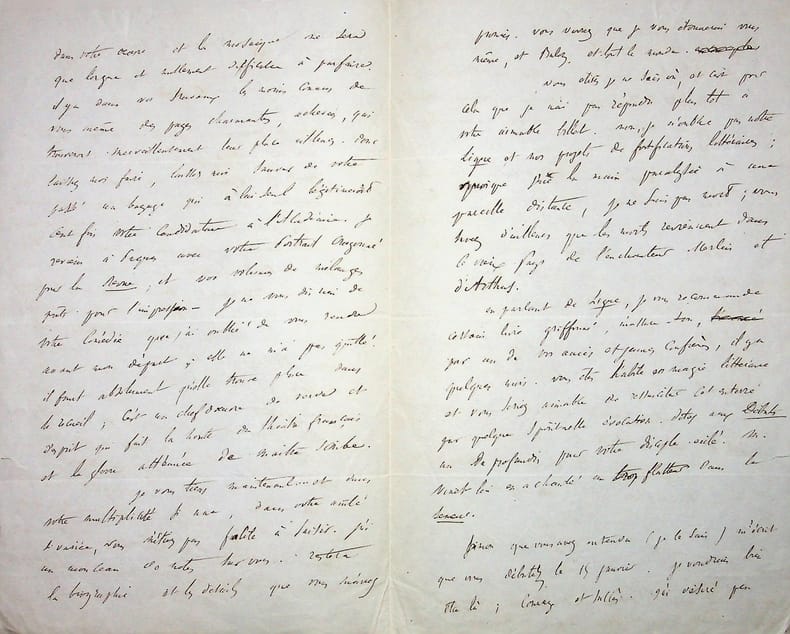 dans votre œuvre et la mosaïque ne sera
que longue et nullement difficile à parfaire.
il y a dans vos travaux les moins connus de
vous même des pages charmantes, achevées, qui
trouvent merveilleusement leur place ailleurs. Donc
laissez moi faire, laissez moi sauver de votre
passé un bagage qui à lui seul légitimerait
cent fois votre candidature à l'Académie. Je
reviens à Paques avec votre Portrait
pour la Revue ; et vos volumes de mélanges
prêts pour l'impression. Je ne vous dis rien de
votre Comédie que j'ai oublié de vous rendre
avant mon départ ; elle ne m'a pas quitté.
il faut absolument qu'elle trouve place dans
le recueil ; c'est un chef d'œuvre de verve et
d'esprit qui fait la honte du théâtre français
et la gloire de maître Scribe.
je vous tiens maintenant et dans
votre multiplicité et une, dans votre unité
vous n'êtes pas facile à saisir. j'ai
un monceau de notes sur vous. restera
la biographie et les détails que vous m'avez
promis. vous verrez que je vous étonnerai vous
même, et et tout le monde.
vous étiez je ne sais où, et c'est pour
cela que je n'ai pas répondu plus tôt à
votre aimable billet. non, je n'oublie pas notre
Ligue et nos projets de fortifications littéraires ;
quoique j'aie la main paralysée à une
pareille distance, je ne suis pas mort ; vous
savez d'ailleurs que les morts reviennent dans
le vieux pays de l'enchanteur Merlin et
d'Arthus.
en parlant de Ligue, je vous recommande
certain livre griffonné, m'assure-t-on,
par un de vos amis et jeunes confrères, il y a
quelques mois. vous êtes habile en magie littéraire
et vous seriez aimable de ressusciter cet enterré
par quelque spirituelle évocation. dites aux Débats
un De profundis pour votre disciple exilé. M.
lui en a chanté un trop flatteur dans la

que vous avez entendu (je le sais) m'écrit
que vous débutez le 15 janvier. je voudrais bien
être là ; courage et succès. qui